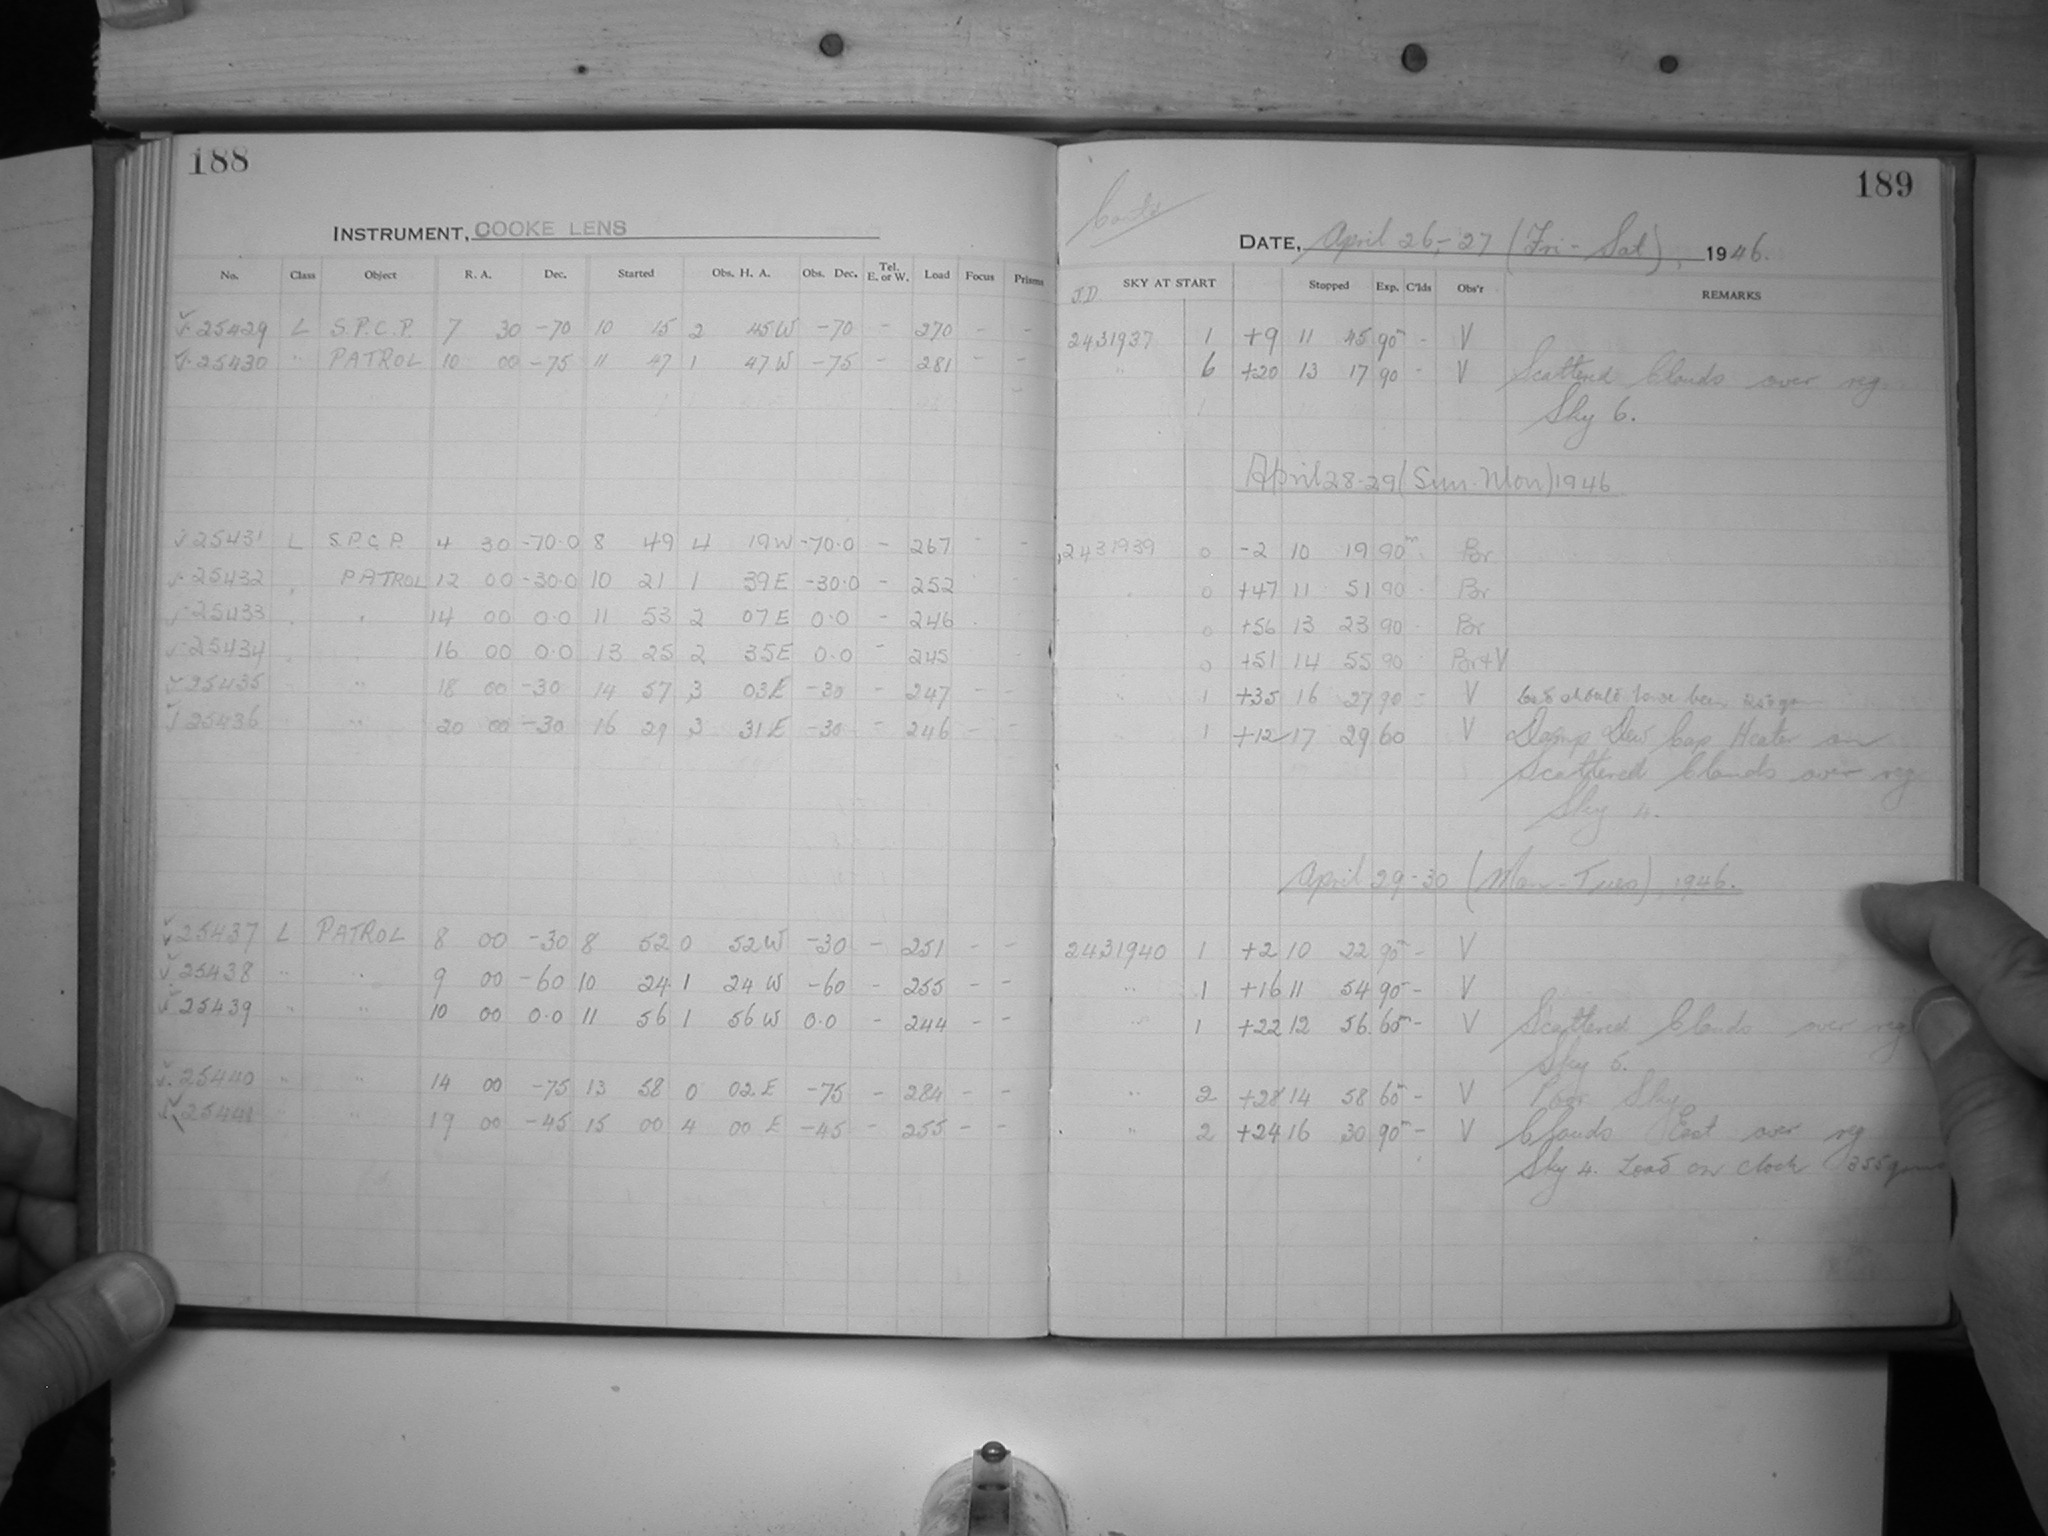 188
INSTRUMENT, COOKE LENS
No. Class Object R. A. Dec. Started Obs. H. A. Obs. Dec. Tel. E. or W. Load Focus Prisms
25429 L S.P.C.P. 7 30 -70 10 15 2 45 W -70 - 270 - -
25430 " PATROL 10 00 -75 11 47 1 47 W -75 - 281 - -
25431 L S.P.C.P. 4 30 -70.0 8 49 4 19 W -70.0 - 267 - -
25432 PATROL 12 00 -30.0 10 21 1 39 E -30.0 - 252
25433 " 14 00 0.0 11 53 2 07 E 0.0 - 246
25434 16 00 0.0 13 25 2 35 E 0.0 - 245
25435 " 18 00 -30 14 57 3 03 E -30 - 247 - -
25436 " 20 00 -30 16 29 3 31 E -30 - 246 - -
25437 L PATROL 8 00 -30 8 52 0 52 W -30 - 251 - -
25438 " " 9 00 -60 10 24 1 24 W -60 - 255 - -
25439 " " 10 00 0.0 11 56 1 56 W 0.0 - 244 - -
25440 " " 14 00 -75 13 58 0 02 E -75 - 284 - -
25441 " " 19 00 -45 15 00 4 00 E -45 - 255 - -
189
DATE, April 26-27 (Fri - Sat), 1946.
J.D SKY AT START Stopped Exp. C'lds Obs'r REMARKS
2431937 1 +9 11 45 90m - V
" 6 +20 13 17 90 - V Scattered Clouds over reg.
Sky 6.
April 28-29 (Sun-Mon) 1946
2431939 0 -2 10 19 90m Por
0 +47 11 51 90 Por
0 +56 13 23 90 Por
0 +51 14 55 90 Por+V
" 1 +35 16 27 90 - V should have been
" 1 +12 17 29 60 V Damp Dew Cap Heater on
Scattered Clouds over reg
Sky 4.
April 29-30 (Mon-Tues), 1946.
2431940 1 +2 10 22 90m - V
" 1 +16 11 54 90m - V
" 1 +22 12 56 60m - V Scattered Clouds over reg
Sky 6.
" 2 +28 14 58 60m - V Poor Sky
" 2 +24 16 30 90m - V Clouds East over reg
Sky 4. Load on clock 255